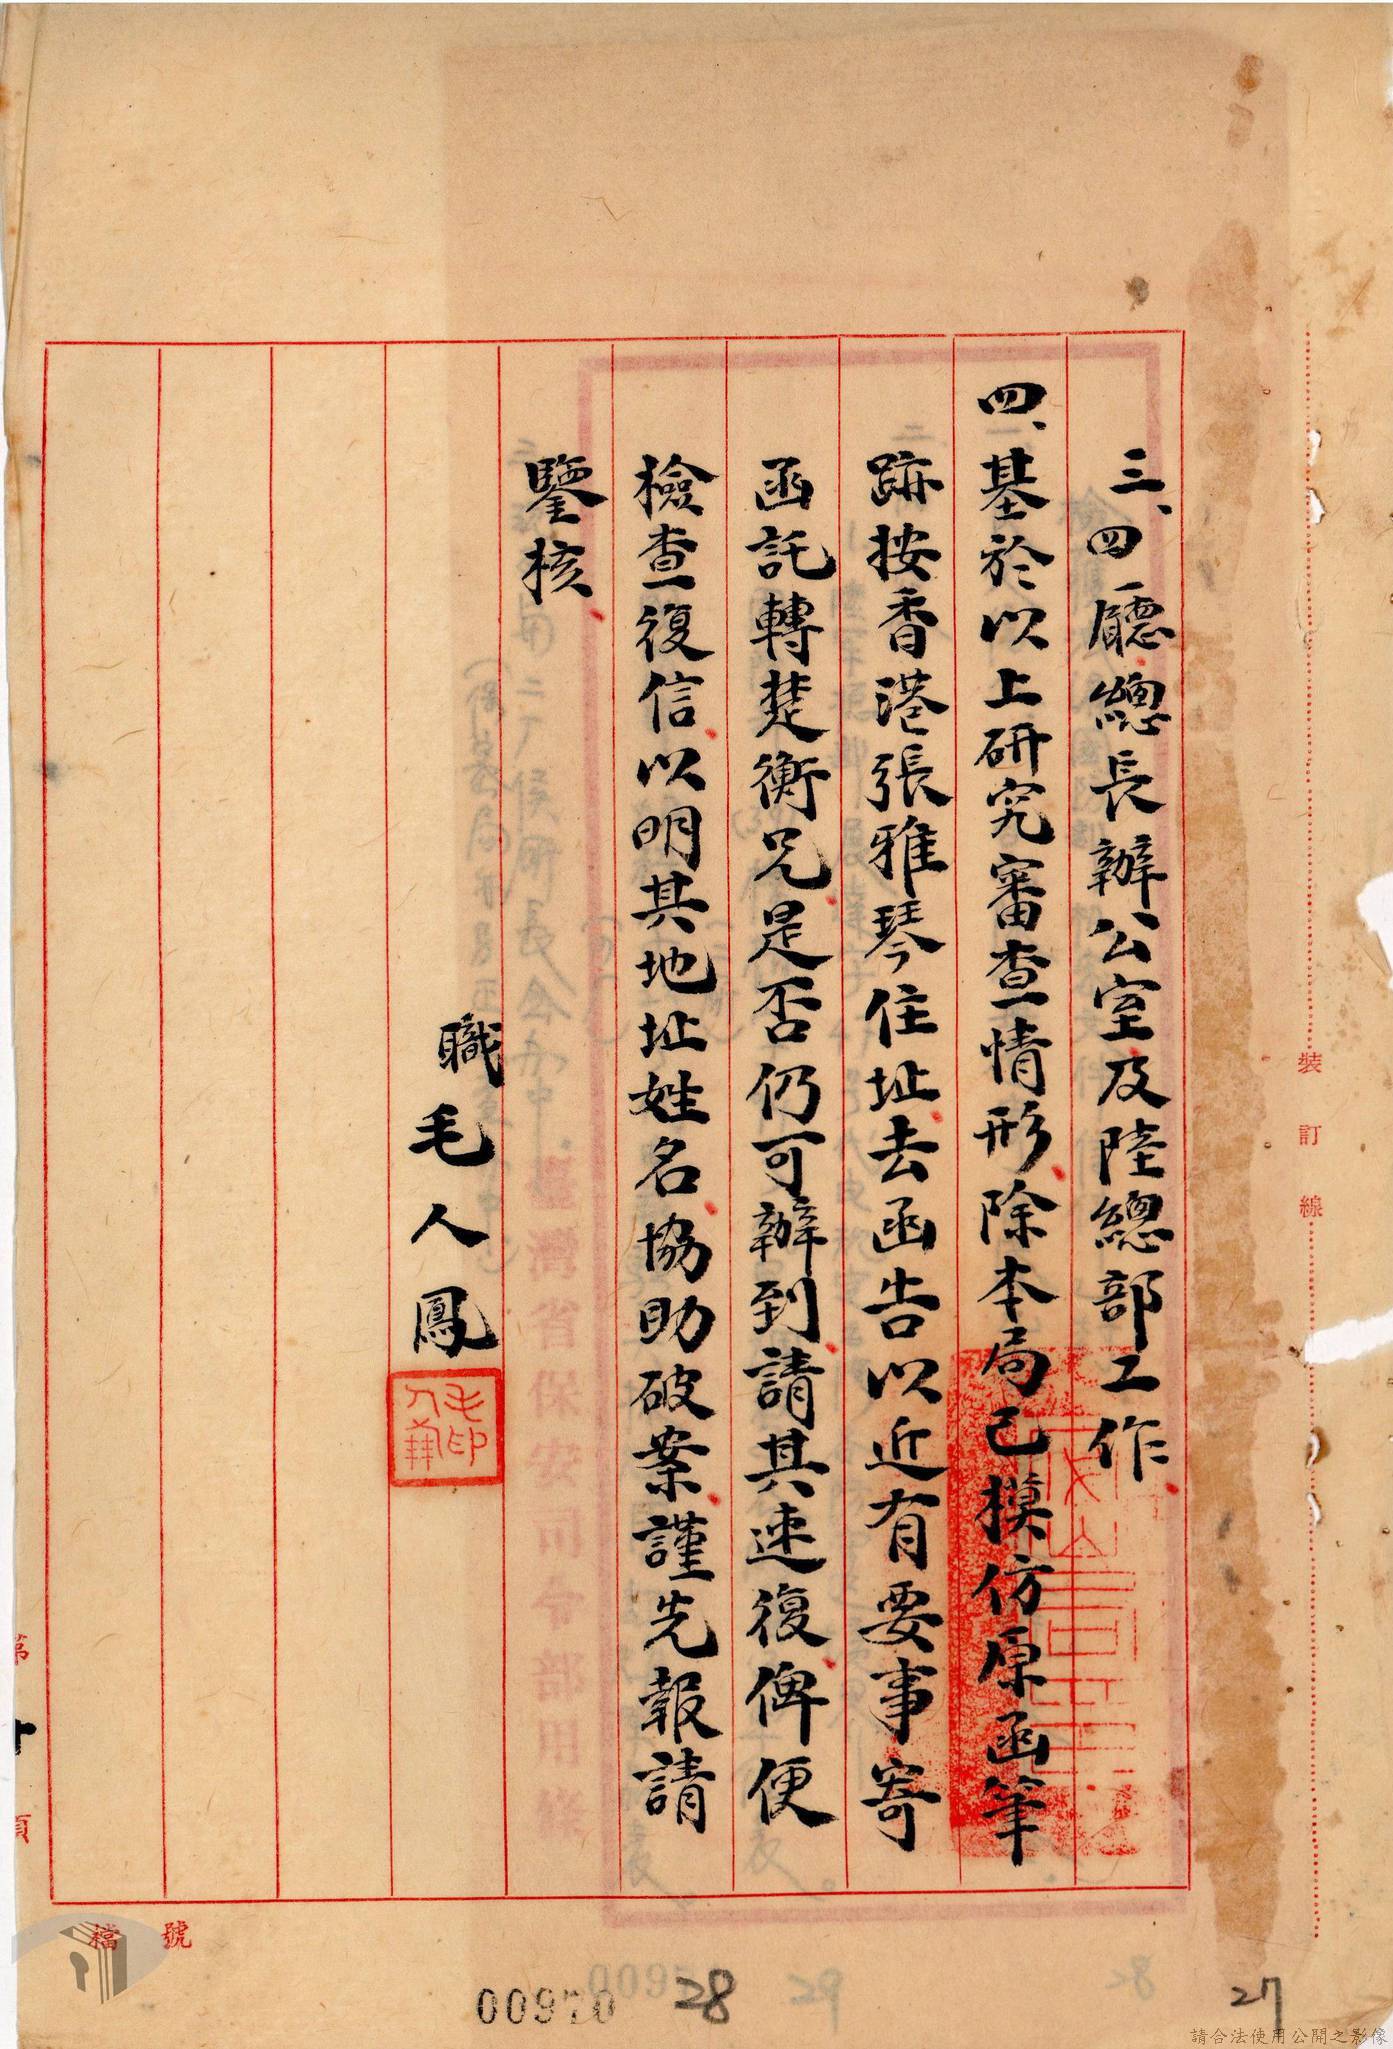 三、四廳總長辦公室及陸總部工作
四、基於以上研究審查情形除本局已摸仿原函筆
跡按香港張雅琴住址去函告以近有要事寄
函託轉楚衡兄是否仍可辦到請其速復俾便
檢查復信以明其地址姓名協助破案謹先報請
鑒核
職毛人鳳
裝訂線
第
頁
檔號
臺灣省保安司令部用箋
00970
28
29
28
27
請合法使用公開之影像